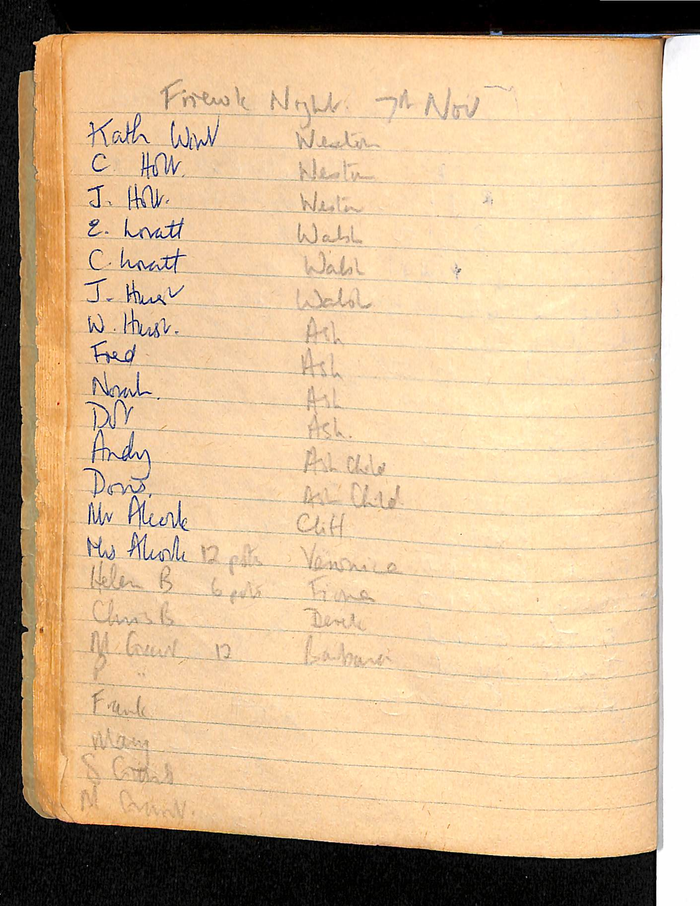 Firewk Night. 7th Nov
Kath Wint Weston
C. Holt. Weston
J. Holt. Weston
E. Lovatt Walsh
C. Lovatt Walsh
J. Hurst Walsh
W. Hurst. Ash
Fred Ash
Norah. Ash
Dot Ash.
Andy Ash Child
Doris. Ash Child
Mr Alcock Cliff
Mrs Alcock 12 pots Veronica
Helen B 6 pots Fiona
Chris B Derek
M 12 Barbara
"
Frank
Mary
S
M